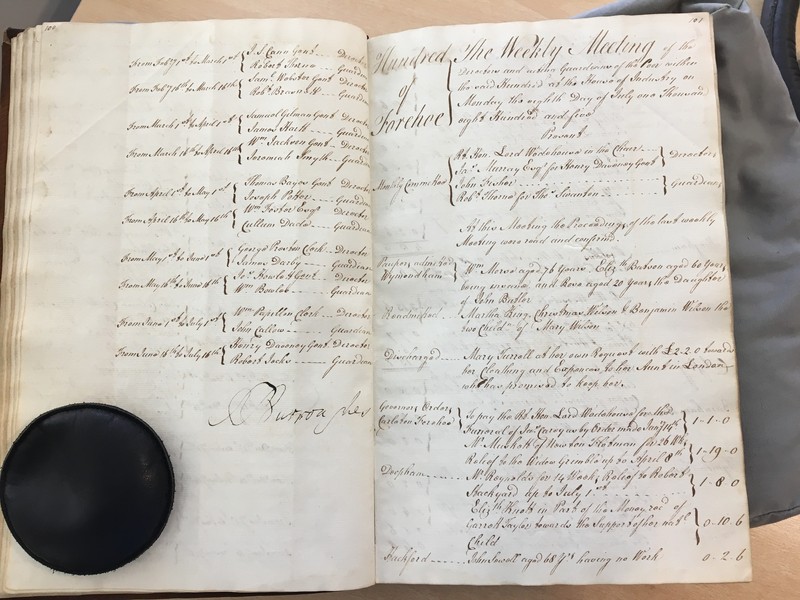 From Feb.y 1st to March 1st { J. S. Cann Gent Director
Robert Thorne Guardian
From Feb.y 16th to March 16th { Saml. Webster Gent Director
Robt. Guardian
From March 1st to April 1st { Samuel Gilman Gent Director
James Hall Guardian
From March 16th to April 16th { Wm. Jackson Gent Director
Jeremiah Smyth Guardian
From April 1st to May 1st { Thomas Bayes Gent Director
Joseph Potter Guardian
From April 16th to May 16th { Wm. Foster Esqr. Director
Cullum Guardian
From May 1st to June 1st { George Preston Clerk Director
James Darby Guardian
From May 16th to June 16th { Gent Director
Wm. Bowles Guardian
From June 1st to July 1st { Wm. Papillon Clerk Director
John Callow Guardian
From June 16th to July 16th { Henry Daveney Gent Director
Robert Jecks Guardian
107
Hundred of Forehoe
The Weekly Meeting of the
Directors and acting Guardians of the Poor within
the said Hundred at the House of Industry on
Monday the eighth Day of July one Thousand
eight Hundred and five
Present
Monthly Committee { Rt. Hon. Lord Wodehouse in the Chair
Jas. Murray Esqr. for Henry Daveney Gent } Directors
John Fisher
Robt. Thorne for Thos. Swanton } Guardians
At this Meeting the Proceedings of the last weekly
Meeting were read and confirmed.
Paupers admitted
Wymondham { Wm. Merse aged 76 Years Elizth. Batson aged 60 Years
being insane and Rose aged 20 Years the daughter
of John Butler
Readmitted Martha Ring, Christmas Wilson & Benjamin Wilson the
two Childn. of Mary Wilson
Discharged Mary Turrell at her own Request with £2-2-0 towards
her Cloathing and Expences to her Aunt in London
who has promised to keep her.
Governors Orders
Carleton Forehoe { To pay the Rt. Hon. Lord Wodehouse for the
Funeral of by Order made Jany. 14th } 1-1-0
Mr. Muskett of Newton Flotman for 26 Wks.
Relief to the Widow up to April 8th } 1-19-0
Deopham Mr. Reynolds for 14 Weeks Relief to Robert
Stackyard up to July 1st } 1-8-0
Elizth. Knott in Part of the Money recd. of
Garrett Taylor towards the Support of her natl.
Child } 0-10-6
Hackford John Sewell aged 68 Yrs. having no Work 0-2-6